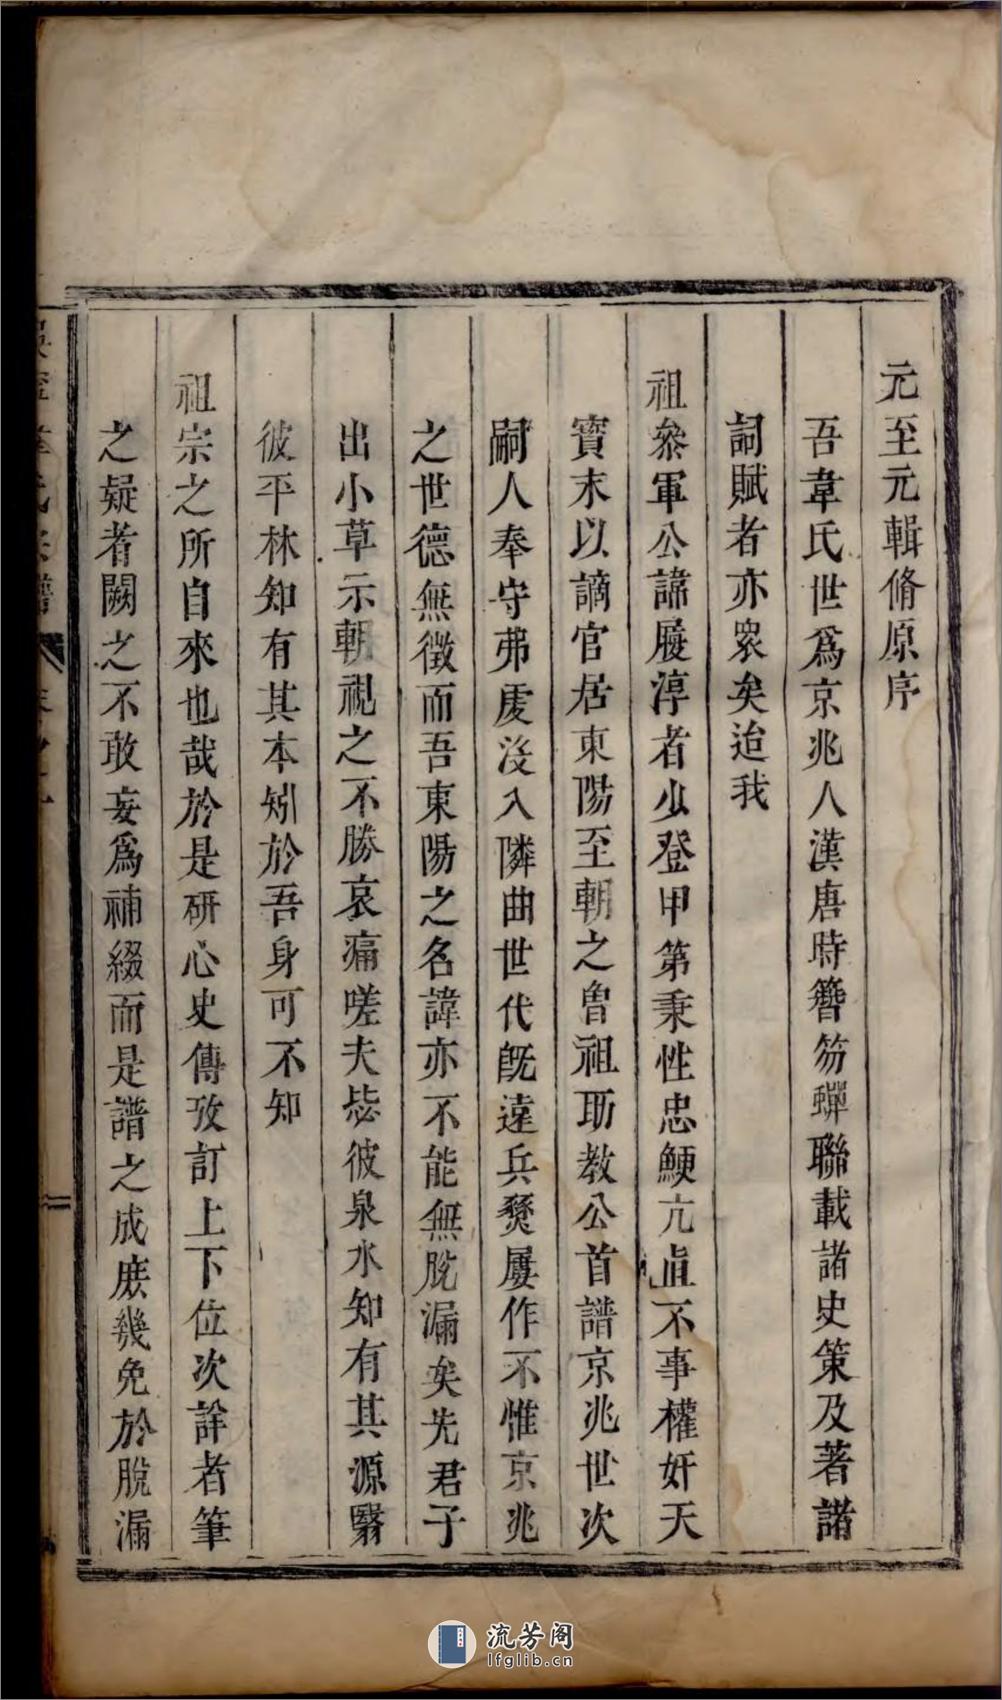 元至元輯脩原序
吾韋氏世爲京兆人漢唐時簪笏蟬聯載諸史策及著諸
詞賦者亦衆矣迨我
祖叅軍公諱屐淳者少登甲第秉性忠鯁亢直不事權奸天
寳末以謫官居東陽至朝之曾祖助教公首譜京兆世次
嗣人奉守弗虔沒入隣曲世代旣遠兵燹屢作不惟京兆
之世德無徵而吾東陽之名諱亦不能無脫漏矣先君子
出小草示朝視之不勝哀痛嗟夫毖彼泉水知有其源翳
彼平林知有其本矧於吾身可不知
祖宗之所自來也哉於是研心史傳攷訂上下位次詳者筆
之疑者闕之不敢妄爲補綴而是譜之成庶幾免於脫漏
流芳阁
lfglib.cn